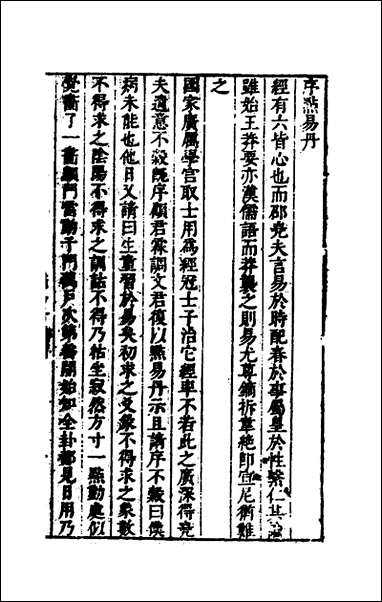 序點易丹
經有六皆心也而邵堯夫言易於時配春於事屬皇於性繫仁其說
雖始王莽要亦漢儒語而莽襲之則易尤尊鏑折韋絕即宣尼衛難
之
國家廣厲學官取士用為經冠士子治它經率不若此之廣深得堯
夫遺意不穀既序顧君篆詞文君復以點易丹示且請序不穀曰僕
病未能也他日又請曰生童習於易矣初求之爻彖不得求之象數
不得求之陰陽不得求之訓詁不得乃枯坐寂然方寸一點動處似
覺衝了一畫顧門雷動千門萬戶次第啓開始知全卦都是日用乃